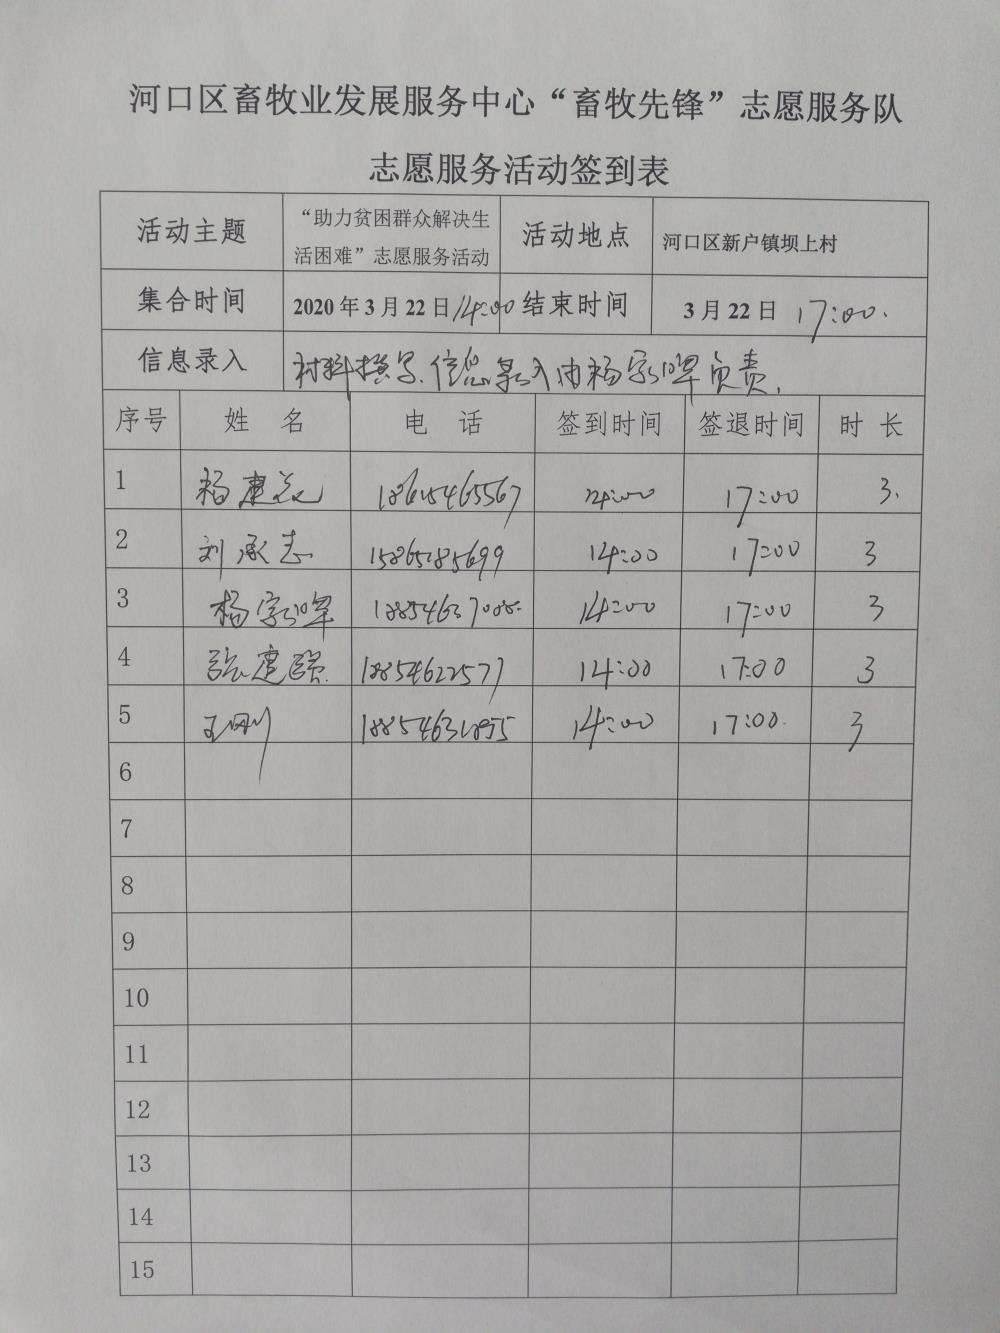 河口区畜牧业发展服务中心“畜牧先锋”志愿服务队
志愿服务活动签到表
活动主题 “助力贫困群众解决生 活动地点 河口区新户镇坝上村
活困难”志愿服务活动
集合时间 2020年3月22日14:00 结束时间 3月22日 17:00.
信息录入 材料撰写、信息录入由杨家晖负责.
序号 姓 名 电 话 签到时间 签退时间 时 长
1 杨建 14:00 17:00 3.
2 刘承志 15865185699 14:00 17:00 3
3 杨家晖 14:00 17:00 3
4 张建强 18854622577 14:00 17:00 3
5 王刚 14:00 17:00. 3
6
7
8
9
10
11
12
13
14
15